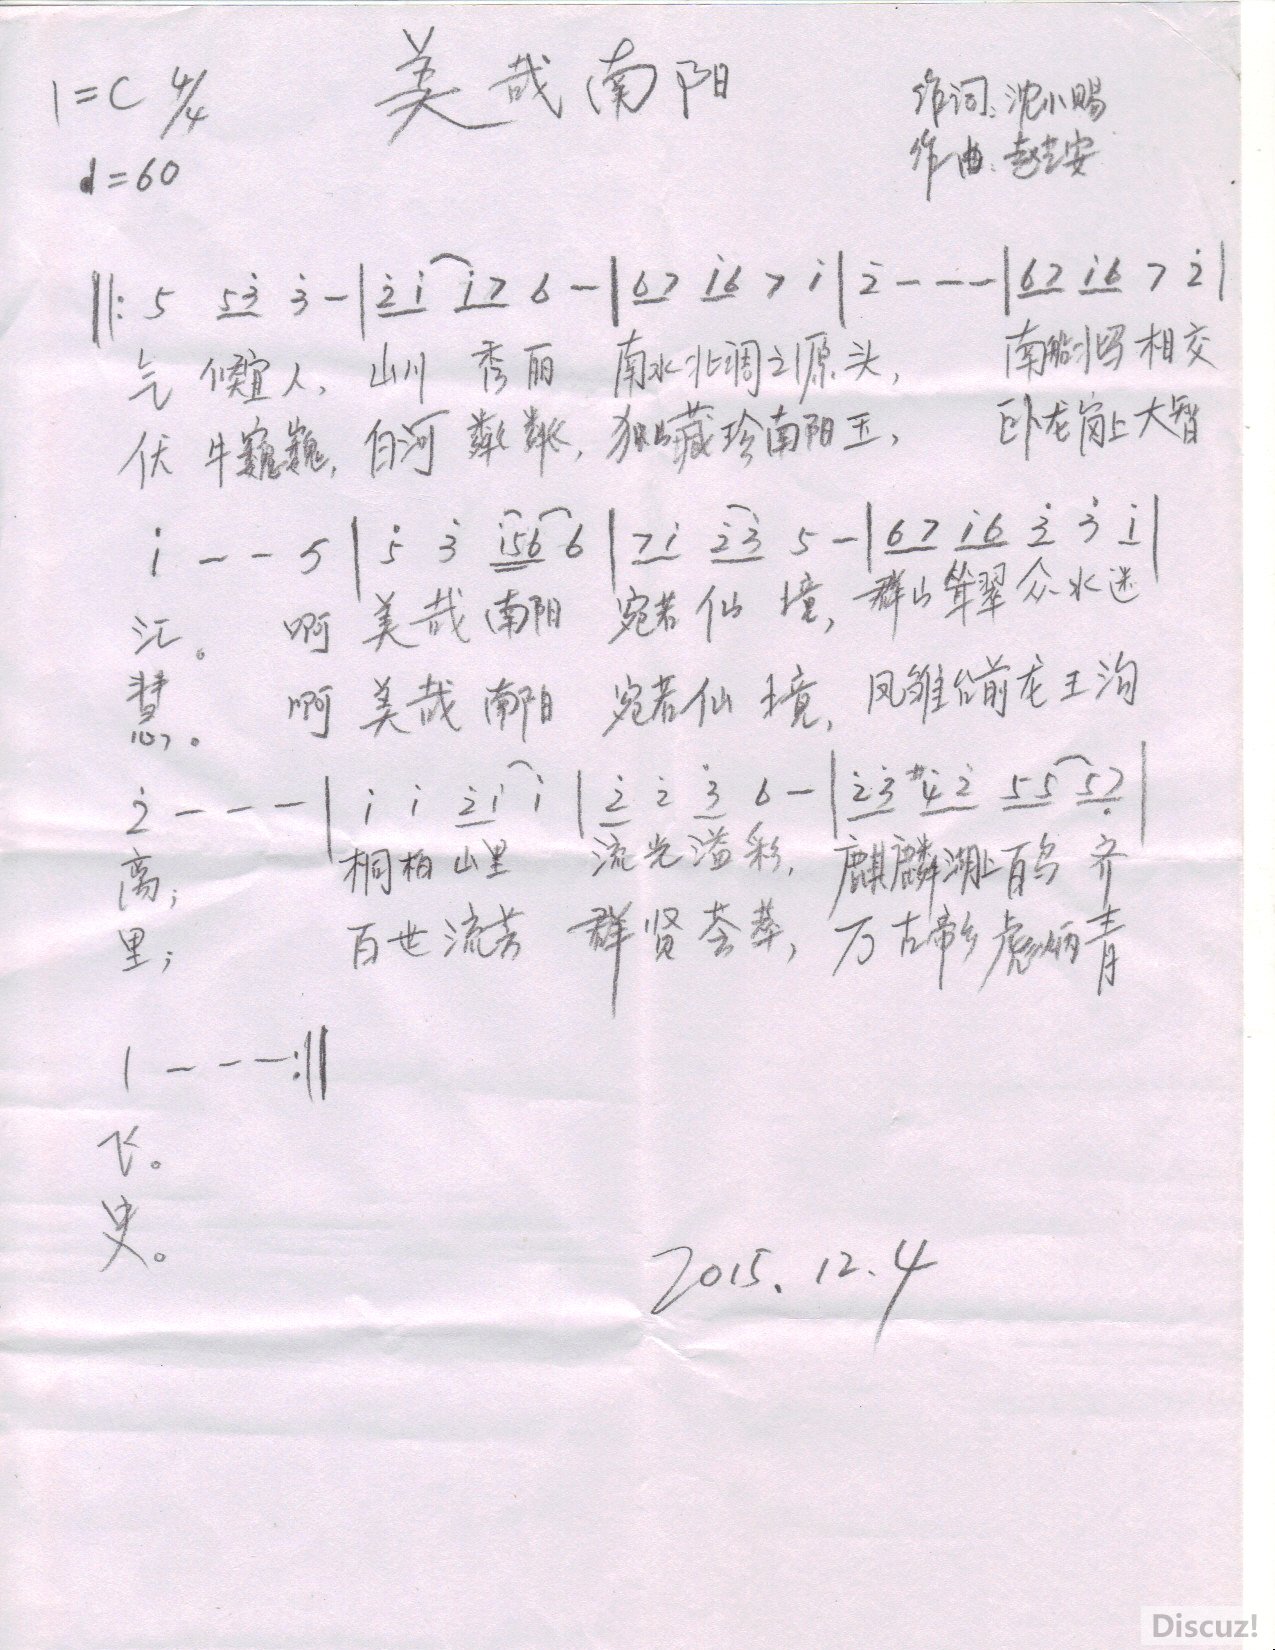 美哉南阳
1=C 4/4
作词:沈小赐
♩=60
作曲:赵 安
‖: 5 5 3̇ 3̇ - | 2̇ 1̇ 1̇ 7 6 - | 6 7 1̇ 6 7 1̇ | 2̇ - - - | 6 7 1̇ 6 7 2̇ |
气候宜人, 山川秀丽 南水北调之源头, 南船北马相交
伏牛巍巍, 白河粼粼, 独山藏珍南阳玉, 卧龙岗上大智
1̇ - - 5 | 5̇ 3̇ 1̇ 5 6 6 | 7 1̇ 2̇ 3̇ 5 - | 6 7 1̇ 6 3̇ 3̇ 1̇ |
汇。 啊 美哉南阳 宛若仙境, 群山耸翠众水迷
慧。 啊 美哉南阳 宛若仙境, 凤雏台前龙王沟
2̇ - - - | 1̇ 1̇ 2̇ 1̇ 1̇ | 2̇ 2̇ 3̇ 6 - | 2̇ 3̇ #4̇ 2̇ 5 5 5 7̣ |
离; 桐柏山里 流光溢彩, 麒麟湖上百鸟齐
里; 百世流芳 群贤荟萃, 万古帝乡彪炳青
1 - - - :‖
飞。
史。
2015.12.4
Discuz!